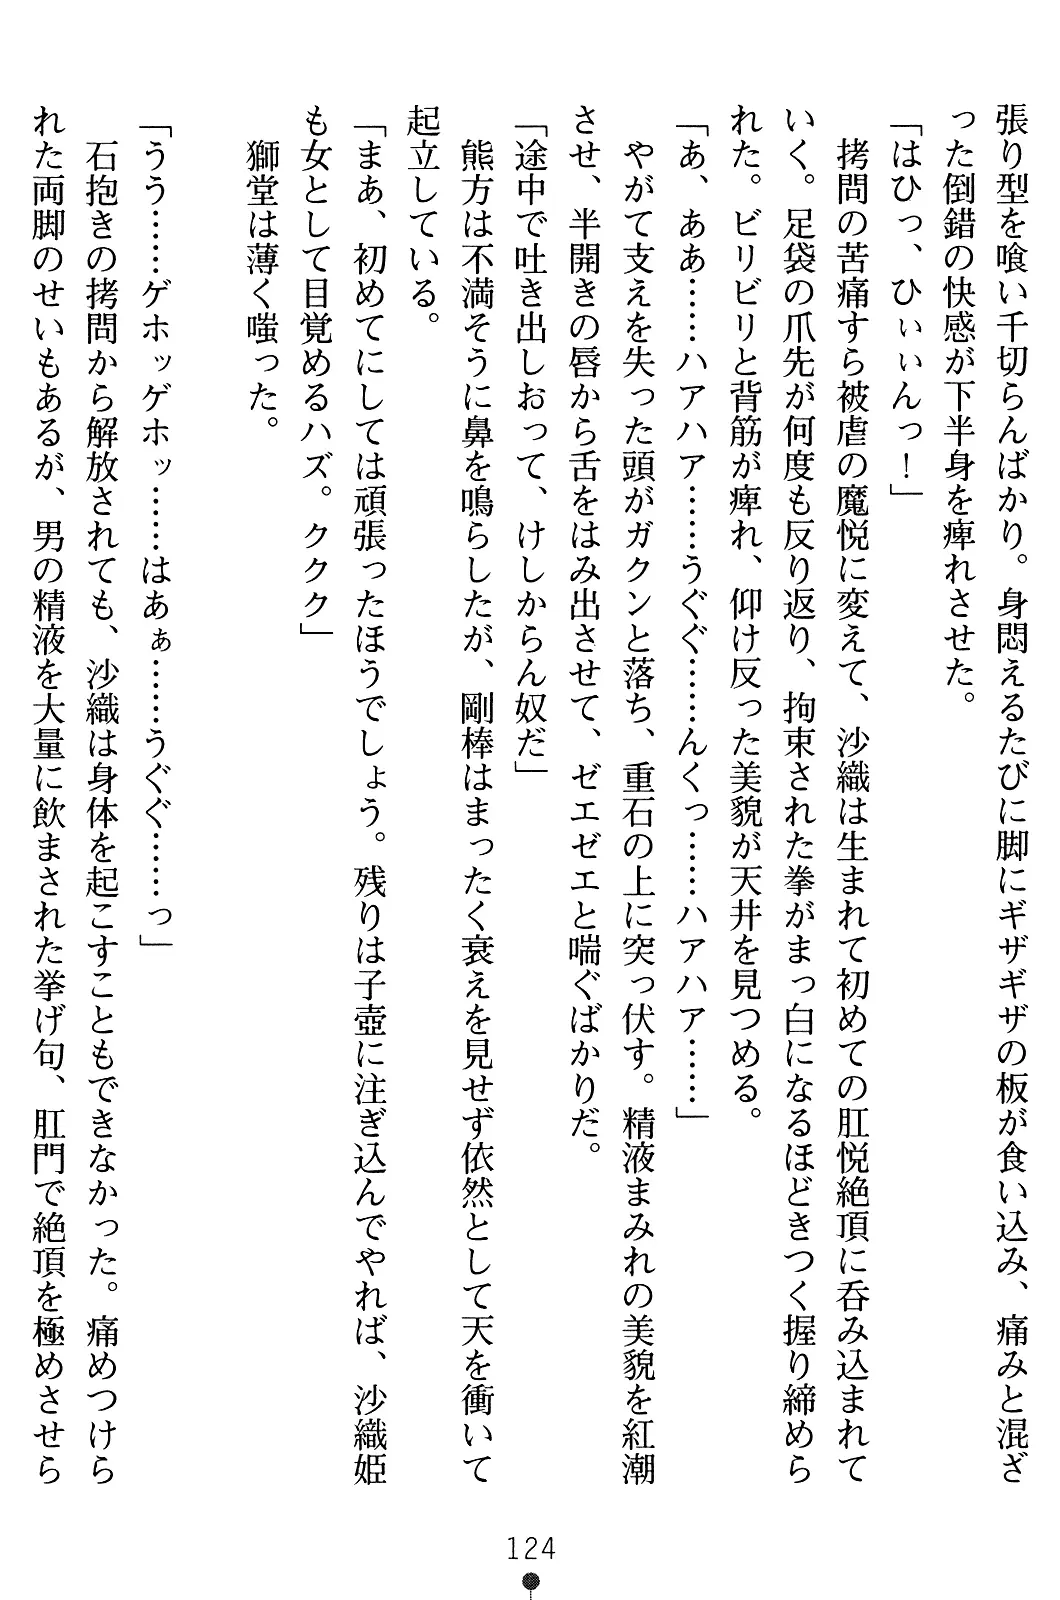 張り型を喰い千切らんばかり。身悶えるたびに脚にギザギザの板が食い込み、痛みと混ざ
った倒錯の快感が下半身を痺れさせた。
「はひっ、ひぃぃんっ！」
拷問の苦痛すら被虐の魔悦に変えて、沙織は生まれて初めての肛悦絶頂に呑み込まれて
いく。足袋の爪先が何度も反り返り、拘束された拳がまっ白になるほどきつく握り締めら
れた。ビリビリと背筋が痺れ、仰け反った美貌が天井を見つめる。
「あ、ああ……ハアハア……うぐぐ……んくっ……ハアハア……」
やがて支えを失った頭がガクンと落ち、重石の上に突っ伏す。精液まみれの美貌を紅潮
させ、半開きの唇から舌をはみ出させて、ゼエゼエと喘ぐばかりだ。
「途中で吐き出しおって、けしからん奴だ」
熊方は不満そうに鼻を鳴らしたが、剛棒はまったく衰えを見せず依然として天を衝いて
起立している。
「まあ、初めてにしては頑張ったほうでしょう。残りは子壺に注ぎ込んでやれば、沙織姫
も女として目覚めるハズ。ククク」
獅堂は薄く嗤った。
「うう……ゲホッゲホッ……はあぁ……うぐぐ……っ」
石抱きの拷問から解放されても、沙織は身体を起こすこともできなかった。痛めつけら
れた両脚のせいもあるが、男の精液を大量に飲まされた挙げ句、肛門で絶頂を極めさせら
124